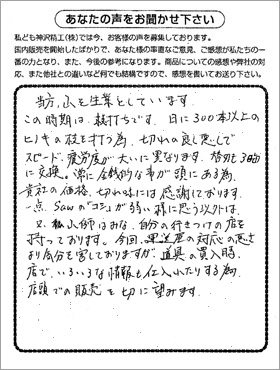 あなたの声をお聞かせ下さい
私ども神沢精工(株)では今、お客様の声を募集しております。
国内販売を開始したばかりで、あなた様の率直なご意見、ご感想が私たちの一
番の力となり、また、今後の参考になります。商品についての感想や弊社の対
応、また他社との違いなど何でも結構ですので、感想を書いてお送り下さい。
当方、山を生業としています。
この時期は、枝打ちです。日に300本以上の
ヒノキの枝を打つ為、切れの良し悪しで
スピード、疲労度が大いに異なります。替刃も3日毎
に交換。常に金銭的な事が頭にある為、
貴社の価格、切れ味には感謝しております。
一点、Sawの"コシ"が弱い様に思う以外は。
又、私山師はみな、自分の行きつけの店を
持っております。今回、運送屋の対応の悪さ
より気分を害しておりますが、道具の買入時、
店で、いろいろな情報も仕入れたりする為、
店頭での販売を切に望みます。